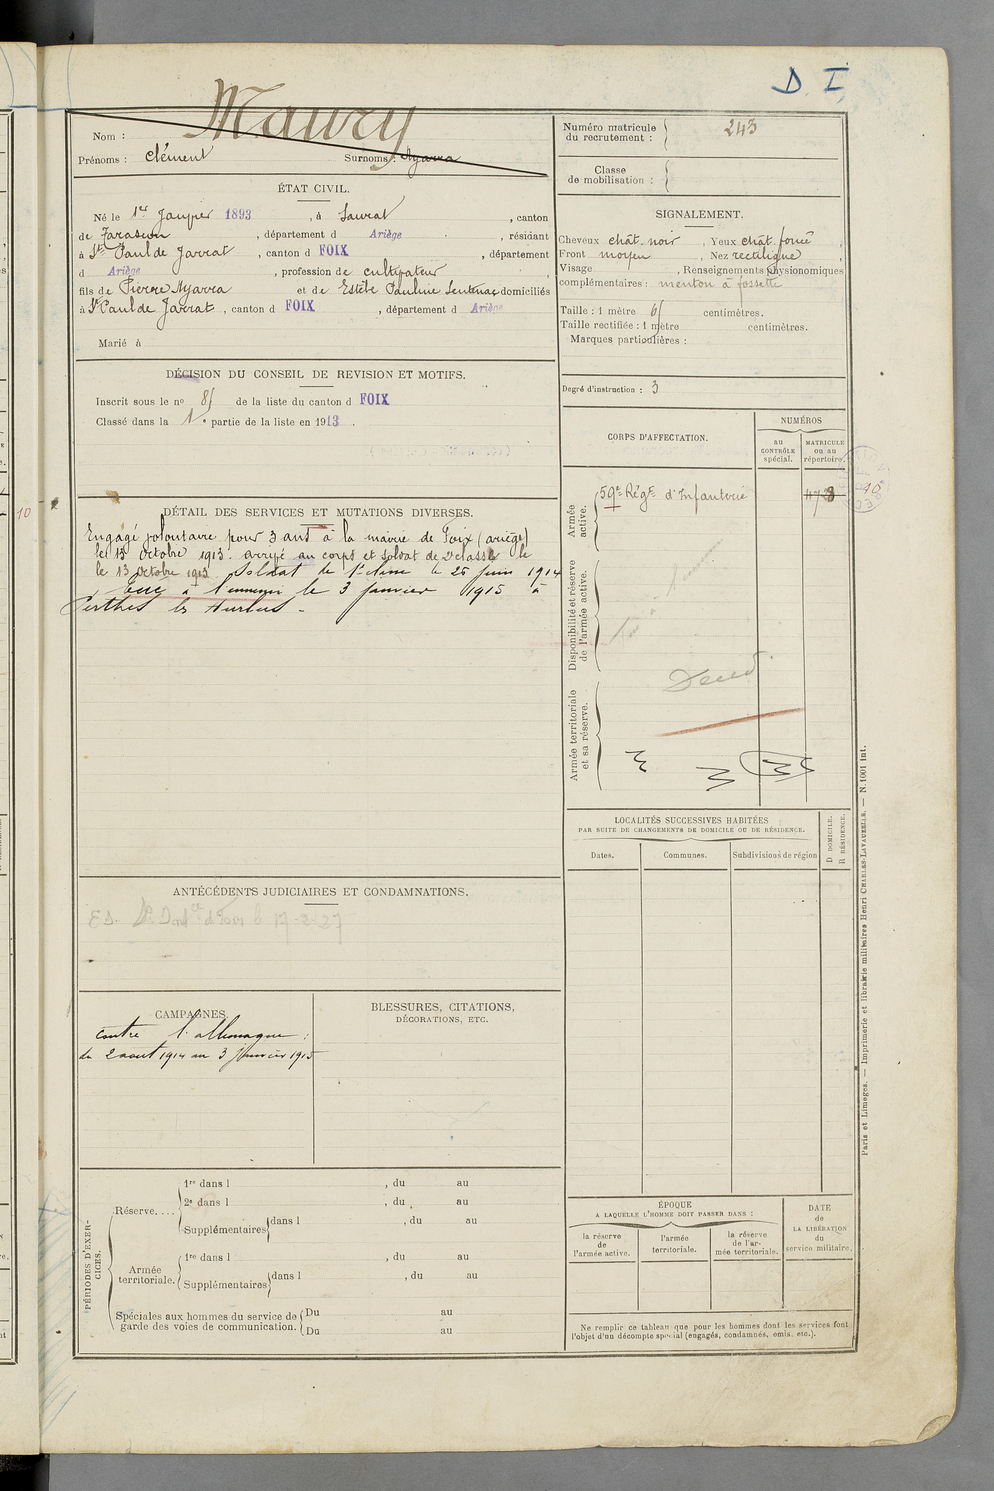 D I
Nom : Maury
Prénoms : Clément Surnoms : Ayarra
Numéro matricule du recrutement : 243
Classe de mobilisation :
ÉTAT CIVIL.
Né le 1er Janvier 1893, à Saurat, canton
de Tarascon, département d Ariège, résidant
à St Paul de Jarrat, canton d FOIX, département
d Ariège, profession de cultivateur
fils de Pierre Ayarra et de Estèbe Pauline Sentenac domiciliés
à St Paul de Jarrat, canton d FOIX, département d Ariège
Marié à
SIGNALEMENT.
Cheveux chât. noir, Yeux chât. foncé,
Front moyen, Nez rectiligne,
Visage , Renseignements physionomiques
complémentaires : menton à fossette
Taille : 1 mètre 61 centimètres.
Taille rectifiée : 1 mètre centimètres.
Marques particulières :
Degré d'instruction : 3
DÉCISION DU CONSEIL DE REVISION ET MOTIFS.
Inscrit sous le no 81 de la liste du canton d FOIX
Classé dans la 1e partie de la liste en 1913.
CORPS D'AFFECTATION.
NUMÉROS
au CONTRÔLE spécial.
MATRICULE ou au répertoire.
Armée active.
59e Régt d'Infanterie
10
Disponibilité et réserve de l'armée active.
Décédé
Armée territoriale et sa réserve.
10
DÉTAIL DES SERVICES ET MUTATIONS DIVERSES.
Engagé volontaire pour 3 ans à la mairie de Foix (ariège)
le 13 octobre 1913. arrivé au corps et soldat de 2e classe le
le 13 octobre 1913. Soldat de 1e classe le 26 juin 1914
Tué à l'ennemi le 3 janvier 1915 à
Perthes les Hurlus -
LOCALITÉS SUCCESSIVES HABITÉES
PAR SUITE DE CHANGEMENTS DE DOMICILE OU DE RÉSIDENCE.
Dates. Communes. Subdivisions de région
D DOMICILE.
R RÉSIDENCE.
ANTÉCÉDENTS JUDICIAIRES ET CONDAMNATIONS.
17-2-27
CAMPAGNES.
contre l'allemagne :
du 2 aout 1914 au 3 janvier 1915
BLESSURES, CITATIONS,
DÉCORATIONS, ETC.
PÉRIODES D'EXERCICES.
Réserve....
1re dans l , du au
2e dans l , du au
Supplémentaires dans l , du au
Armée territoriale.
1re dans l , du au
Supplémentaires dans l , du au
Spéciales aux hommes du service de garde des voies de communication.
Du au
Du au
ÉPOQUE
A LAQUELLE L'HOMME DOIT PASSER DANS :
la réserve de l'armée active.
l'armée territoriale.
la réserve de l'armée territoriale.
DATE de LA LIBÉRATION du service militaire.
Ne remplir ce tableau que pour les hommes dont les services font
l'objet d'un décompte spécial (engagés, condamnés, omis, etc.).
Paris et Limoges. — Imprimerie et librairie militaires Henri CHARLES-LAVAUZELLE. — N. 1001 int.